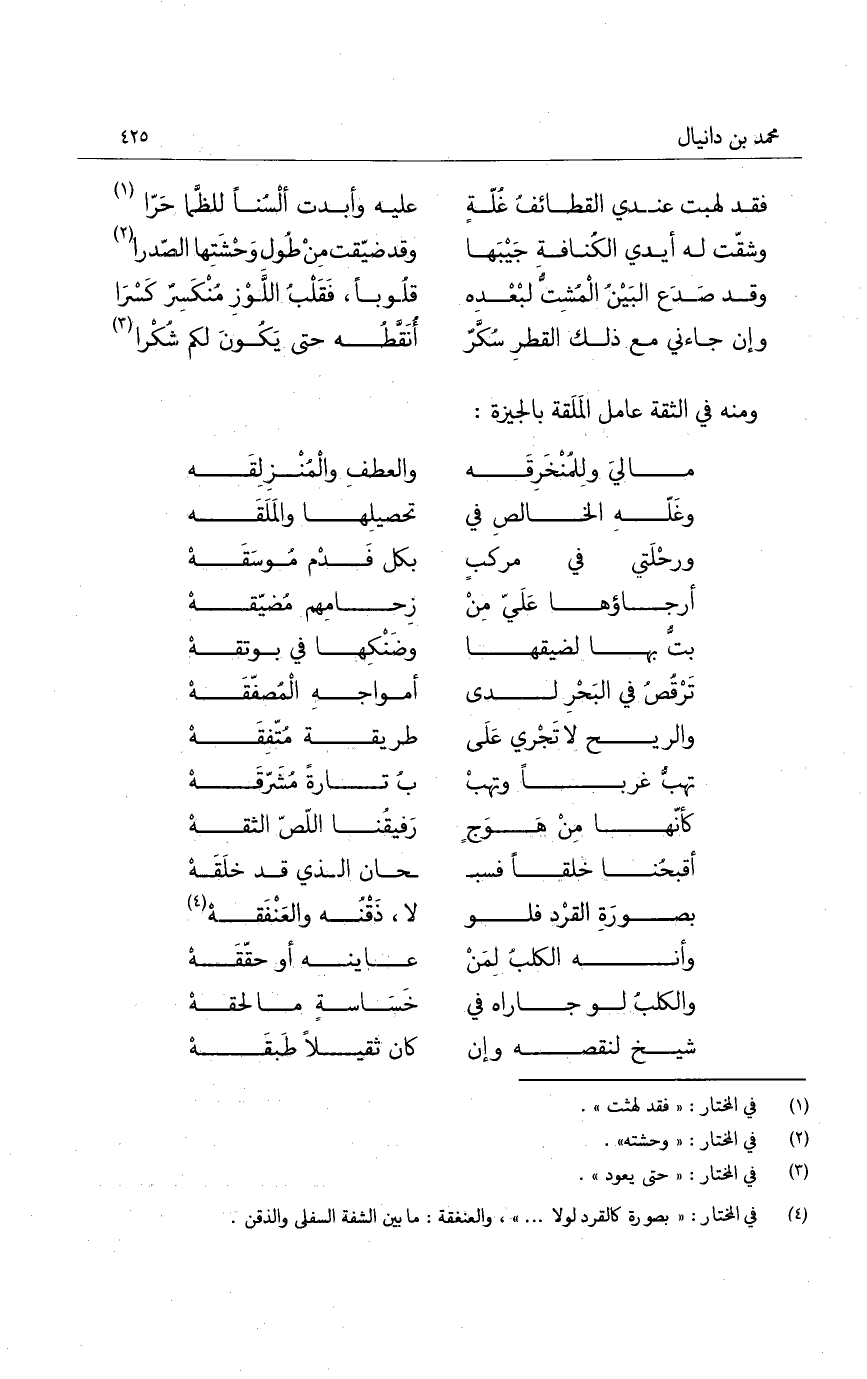 محمد بن دانيال ٤٢٥
فقد لهبت عندي القطائفُ غُلّةً عليه وأبدت ألْسُناً للظّما حَرّا (١)
وشقّت له أيدي الكُنافةِ جَيْبَها وقد ضيّقت مِنْ طُول وَحْشَتِها الصّدرا (٢)
وقد صَدَعَ البَيْنُ الْمُشِتُّ لبُعْدِه قلوباً، فَقَلْبُ اللَّوْزِ مُنْكَسِرٌ كَسْرَا
وإن جاءني مع ذلك القطرِ سُكَّرٌ أُنَقَّطُه حتى يَكُونَ لكم شُكْرا (٣)
ومنه في الثقة عامل المَلَقة بالجيزة :
ماليَ وللمُنْخَرِقَه والعطفِ والْمُنْزلِقَه
وغَلّهِ الخالصِ في تحصيلها والمَلَقَه
ورحْلَتي في مركبٍ بكل فَدْم مُوسَقَهْ
أرجاؤها عَلَيّ مِنْ زحامِهم مُضيّقهْ
بتُّ بها لضيقها وضَنْكِها في بوتقهْ
تَرْقُصُ في البَحْرِ لدى أمواجهِ الْمُصفّقَهْ
والريح لا تَجْري عَلَى طريقة مُتّفِقَهْ
تهبُّ غرباً وتهبْ بُ تارةً مُشَرّقَهْ
كأنّها مِنْ هَوَجٍ رَفيقُنا اللّصّ الثقهْ
أقبحُنا خلقاً فسبـ ـحان الذي قد خلَقَهْ
بصورَةِ القرْد فلو لا، ذَقْنُه والعَنْفَقهْ (٤)
وأنه الكلبُ لمَنْ عاينه أو حقّقَهْ
والكلبُ لو جاراه في خَسَاسةٍ ما لحقهْ
شيخ لنقصه وإن كان ثقيلاً طَبقَهْ
(١) في المختار : « فقد لهثت » .
(٢) في المختار : « وحشته» .
(٣) في المختار : « حتى يعود » .
(٤) في المختار : « بصورة كالقرد لولا ... » ، والعنفقة : ما بين الشفة السفلى والذقن .